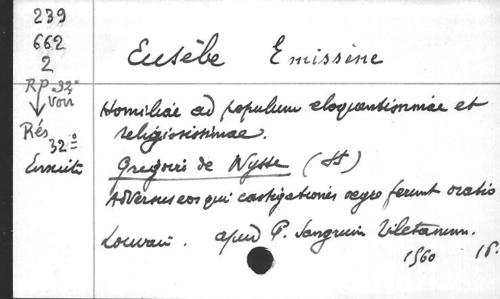 239
662
2
RP "32"
↓ voir
Rés
32=°
Ensuite
Eusèbe Emissène
Homiliae ad populum eloquentissimae et
religiosissimae.
Grégoire de Nysse (St)
Adversus eos qui castigationes aegre ferunt oratio
Louvain. apud P. Sangrium Tiletanum.
1560 16.